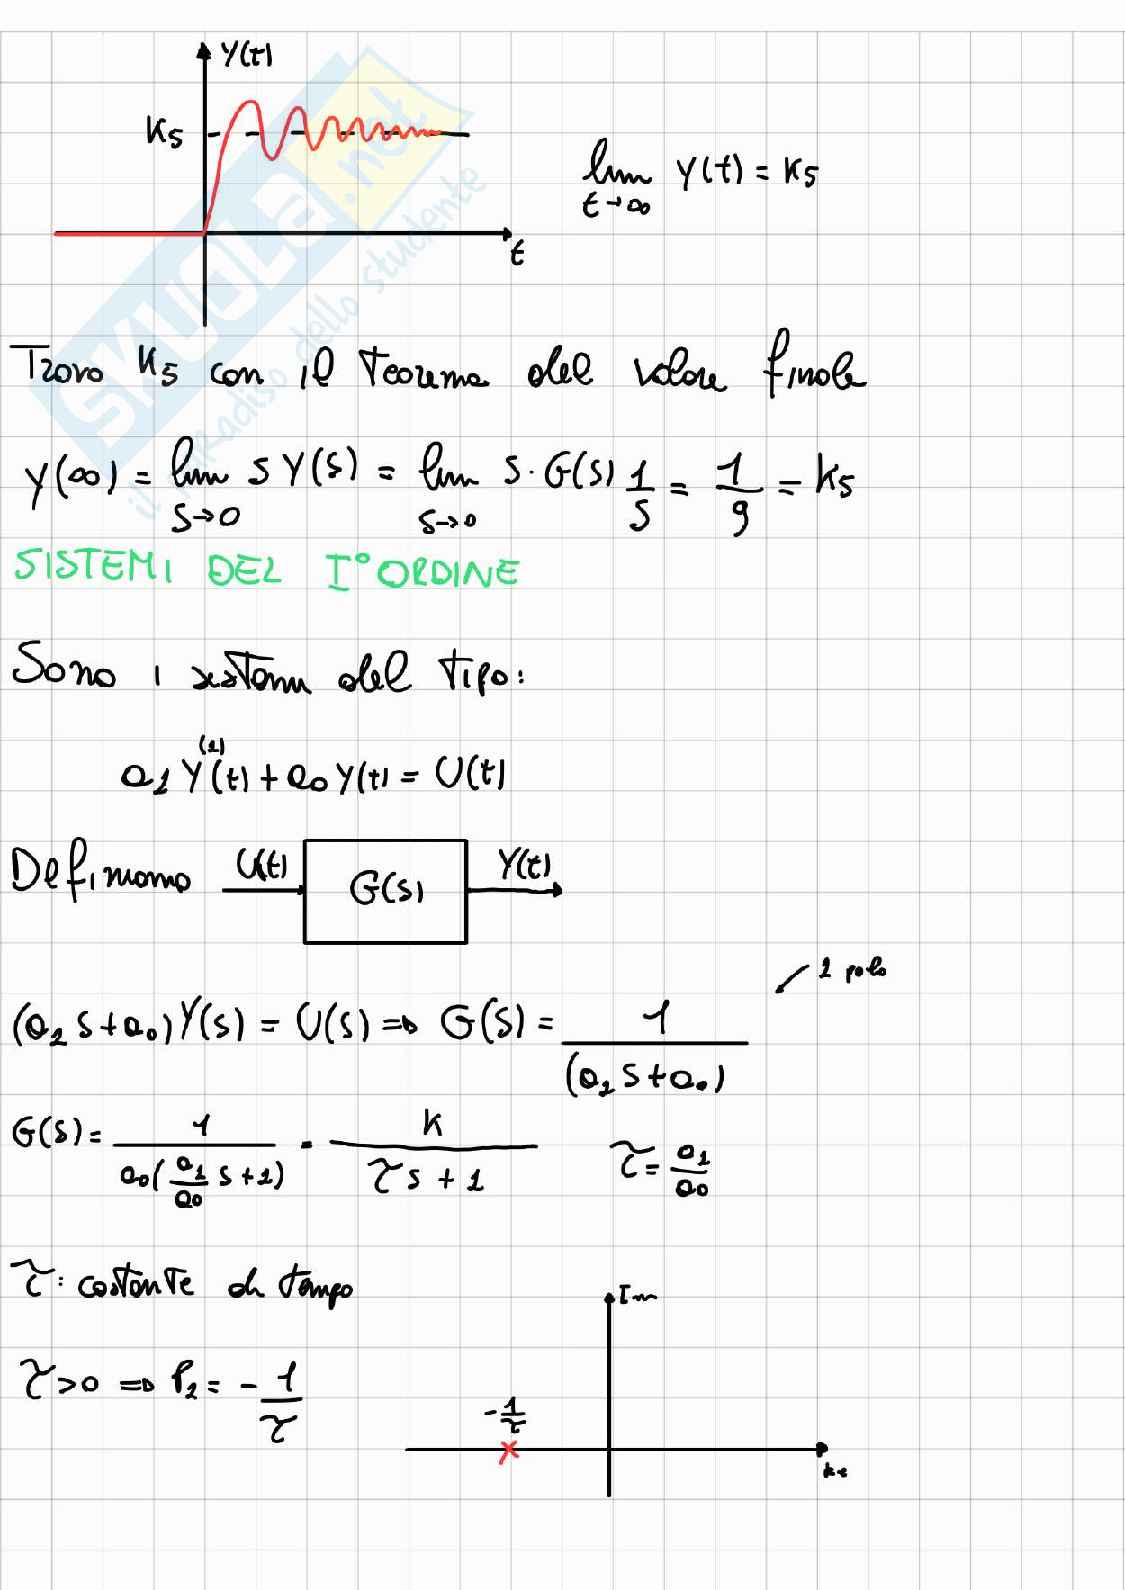 Y(t)
K5
t
lim Y(t) = K5
t→∞
SKUOLA.net
il paradiso dello studente
Trovo K5 con il Teorema del valore finale
Y(∞) = lim S Y(S) = lim S · G(S) 1/S = 1/9 = K5
S→0 S→0
SISTEMI DEL I° ORDINE
Sono i sistemi del tipo:
a1 Y(1)(t) + a0 Y(t) = U(t)
Definiamo U(t) G(S) Y(t)
1 polo
(a1 S + a0) Y(S) = U(S) => G(S) = 1/(a1 S + a0)
G(S) = 1/(a0(a1/a0 S + 1)) = K/(τS + 1) τ = a1/a0
τ: costante di tempo
Im
τ > 0 => P1 = -1/τ
-1/τ
Re